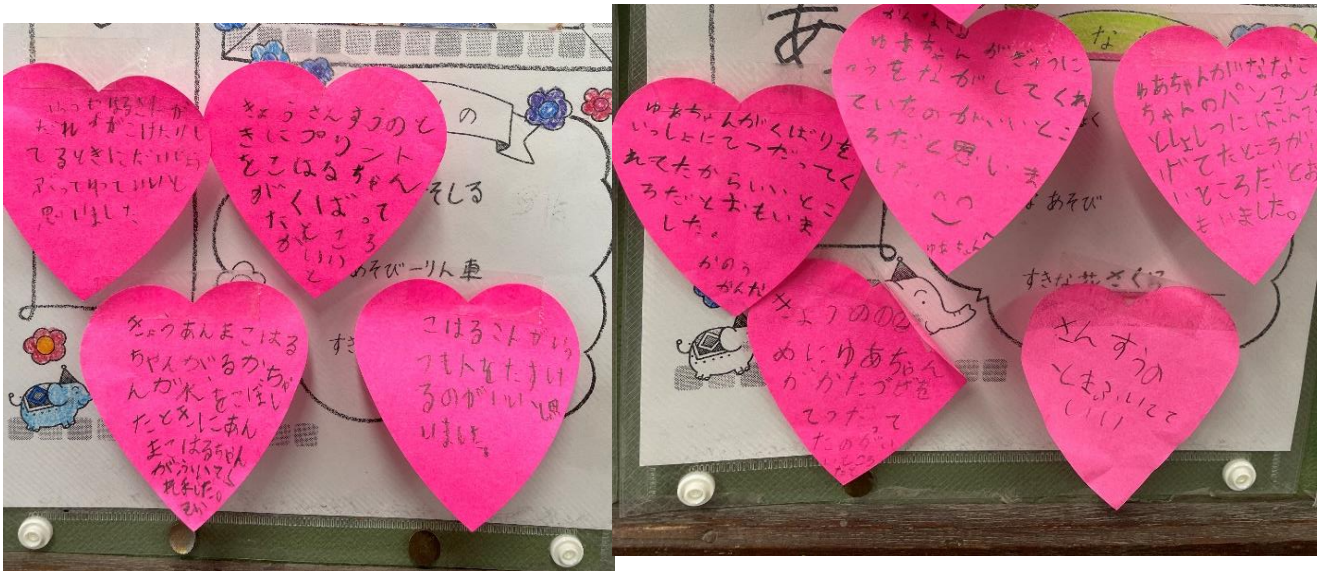 の
そしる
あそび一りん車
すき
だれかがこけたりし
てるときにだいじょ
思いました
きょうさんすうのと
きにプリント
をこはるちゃん
がくばって
たところ
がいいと
きょうあんまこはる
ちゃんがるかちゃ
んが水をこぼし
たときにあん
まこはるちゃん
がふいてく
れました。
こはるさんがいつ
つも人をたすけ
るのがいいと思
いました。
あ
な
あそび
すきな花さくら
ゆあちゃんがくばりを
いっしょにてつだってく
れてたからいいとこ
ろだとおもいま
した。
かのう
かんた
ゆあちゃんがぎゅうに
ゅうをながしてくれ
ていたのがいいとこ
ろだと思いま
した。
ゆあちゃんへ
ゆあちゃんがななこ
ちゃんのパソコンを
としょしつにはこんで
あげてたところがい
いところだとお
もいました。
きょうの
めにゆあちゃん
がかたづけを
てつだって
たのがい
いところ
だ
さんすうの
ときふいてて
いい